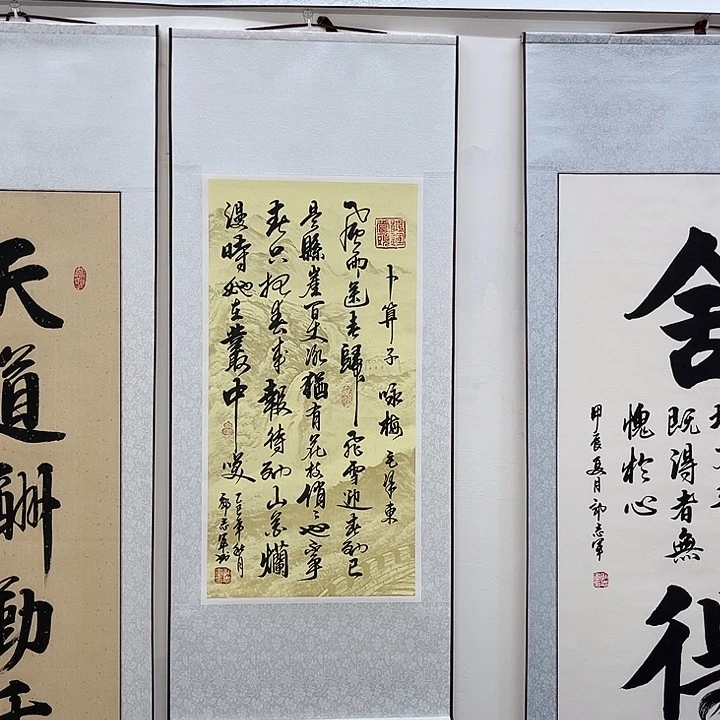 舍
得
既得者無
愧於心
甲辰夏月 郭志軍
卜算子 咏梅 毛泽東
風雨送春歸 飛雪迎春到已
是縣崖百丈冰猶有花枝俏〻也不爭
春只把春来報待到山花爛
漫時她在叢中笑
乙巳年秋月
郭志軍书
天道酬勤